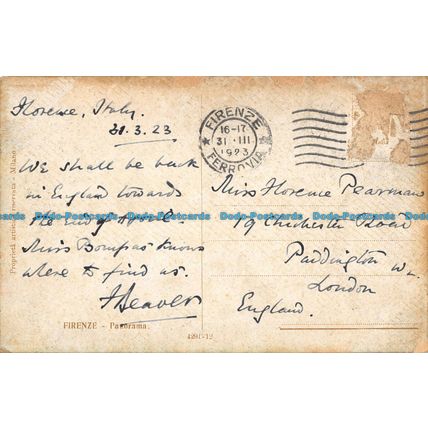 Florence, Italy.
31.3.23
We shall be back
in England towards
the end of April.
Miss Bompas knows
where to find us.
FIRENZE - Panorama.
4291-12
Proprietà artistica riservata - Milano
FIRENZE
16-17
31·III
1923
FERROVIA
Miss Florence Pearman
19 Chichester Road
Paddington W.
London
England.
Dodo-Postcards Dodo-Postcards Dodo-Postcards Dodo-Postcards
Dodo-Postcards Dodo-Postcards Dodo-Postcards Dodo-Postcards